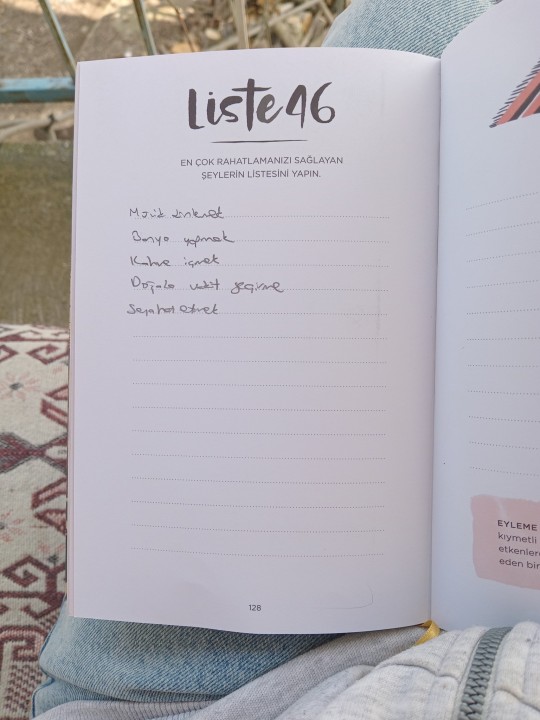 Liste 46
EN ÇOK RAHATLAMANIZI SAĞLAYAN
ŞEYLERİN LİSTESİNİ YAPIN.
Müzik dinlemek
Banyo yapmak
Kahve içmek
Doğada vakit geçirme
Seyahat etmek
128
EYLEME
kıymetli
etkenler
eden bir